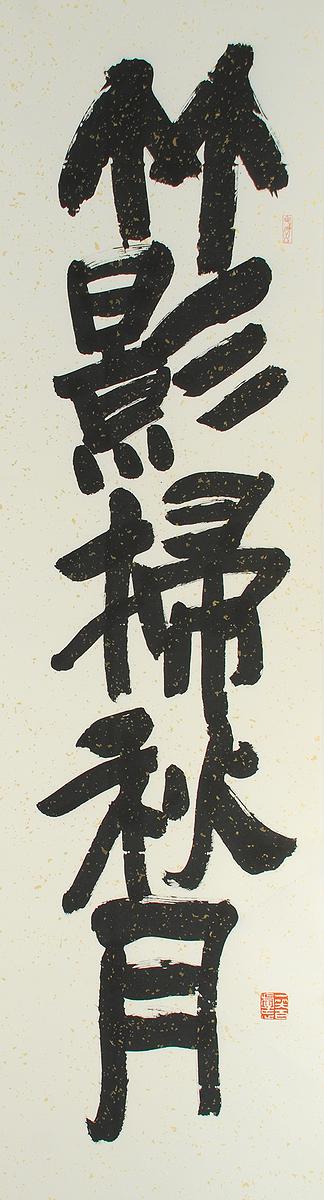 竹影掃秋月